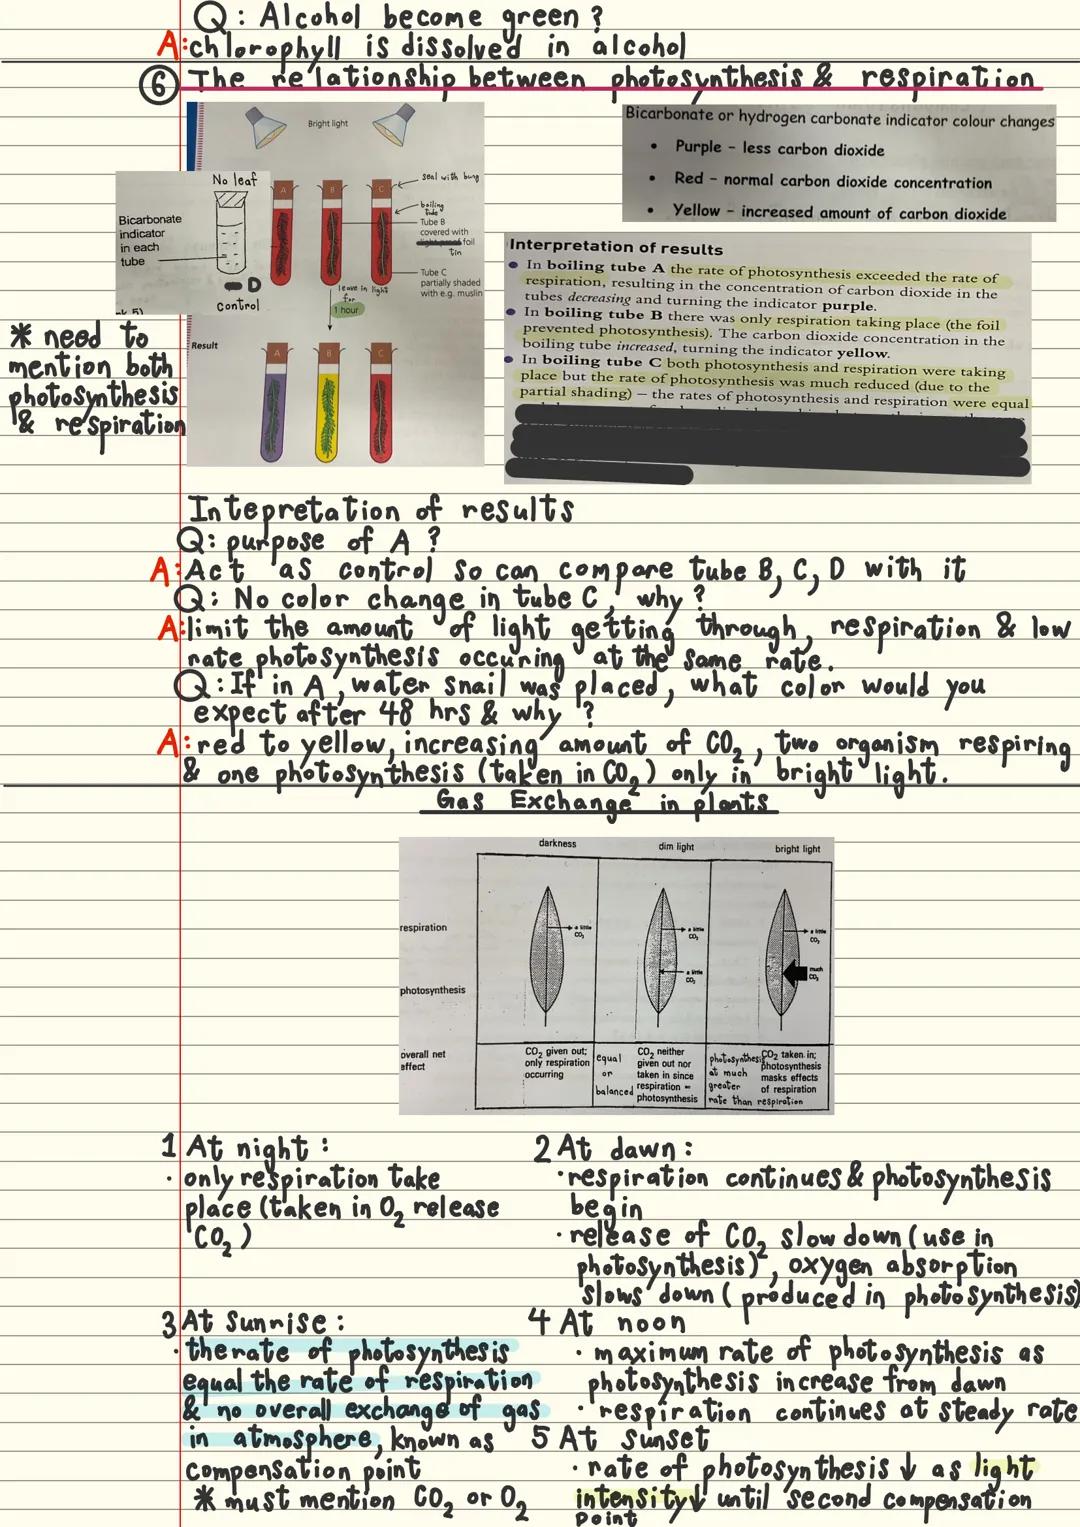 Q: Alcohol become green?
A: chlorophyll is dissolved in alcohol
⑥ The relationship between photosynthesis & respiration
Bright light
No leaf
A
B
C
seal with bung
boiling tube
Bicarbonate
indicator
in each
tube
Tube B
covered with
foil
tin
D
control
leave in light
for
1 hour
Tube C
partially shaded
with e.g. muslin
Result
A
B
C
Bicarbonate or hydrogen carbonate indicator colour changes
• Purple – less carbon dioxide
• Red – normal carbon dioxide concentration
• Yellow – increased amount of carbon dioxide
Interpretation of results
• In boiling tube A the rate of photosynthesis exceeded the rate of
respiration, resulting in the concentration of carbon dioxide in the
tubes decreasing and turning the indicator purple.
• In boiling tube B there was only respiration taking place (the foil
prevented photosynthesis). The carbon dioxide concentration in the
boiling tube increased, turning the indicator yellow.
• In boiling tube C both photosynthesis and respiration were taking
place but the rate of photosynthesis was much reduced (due to the
partial shading) – the rates of photosynthesis and respiration were equal
* need to
mention both
photosynthesis
& respiration
Intepretation of results
Q: purpose of A?
A: Act as control so can compare tube B, C, D with it
Q: No color change in tube C, why?
A: limit the amount of light getting through, respiration & low
rate photosynthesis occuring at the same rate.
Q: If in A, water snail was placed, what color would you
expect after 48 hrs & why?
A: red to yellow, increasing amount of CO₂, two organism respiring
& one photosynthesis (taken in CO₂) only in bright light.
Gas Exchange in plants
darkness
dim light
bright light
respiration
a little
CO₂
a little
CO₂
a little
CO₂
photosynthesis
a little
CO₂
much
CO₂
overall net
effect
CO₂ given out;
only respiration
occurring
equal
or
balanced
CO₂ neither
given out nor
taken in since
respiration =
photosynthesis
photosynthesis
at much
greater
rate than respiration
CO₂ taken in;
photosynthesis
masks effects
of respiration
1 At night:
· only respiration take
place (taken in O₂ release
CO₂)
2 At dawn:
· respiration continues & photosynthesis
begin
· release of CO₂ slow down (use in
photosynthesis), oxygen absorption
slows down (produced in photosynthesis)
3 At Sunrise:
· the rate of photosynthesis
equal the rate of respiration
& no overall exchange of gas
in atmosphere, known as
compensation point
* must mention CO₂ or O₂
4 At noon
· maximum rate of photosynthesis as
photosynthesis increase from dawn
· respiration continues at steady rate
5 At Sunset
· rate of photosynthesis ↓ as light
intensity ↓ until second compensation
point